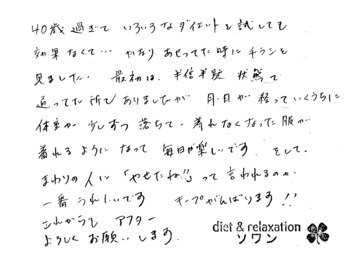 40歳過ぎて いろいろなダイエットを試しても
効果なくて… かなりあせってた時にチラシを
見ました。 最初は、半信半疑 状態で
通ってた所もありましたが 月日が経っていくうちに
体重が少しずつ落ちて、着れなくなった服が
着れるようになって 毎日が楽しいです。 そして、
まわりの人に「やせたね!!」って言われるのが
一番うれしいです キープがんばります!!
これからも アフター
よろしくお願いします。
diet & relaxation
ソワン